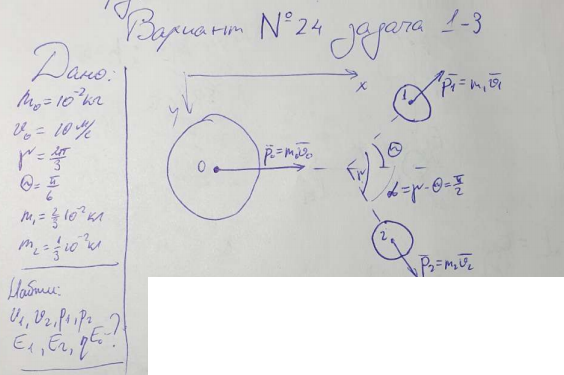 Вариант №24 задача 1-3
Дано:
m₀ = 10⁻² кг
v₀ = 10 м/с
γ = 2π/3
Θ = π/6
m₁ = 2/3 · 10⁻² кг
m₂ = 1/3 · 10⁻² кг
Найти:
v₁, v₂, p₁, p₂
E₁, E₂, η, E₀ - ?
x
y
0
p̄₀ = m₀v̄₀
1
p̄₁ = m₁v̄₁
Θ
γ
α = γ - Θ = π/2
2
p̄₂ = m₂v̄₂